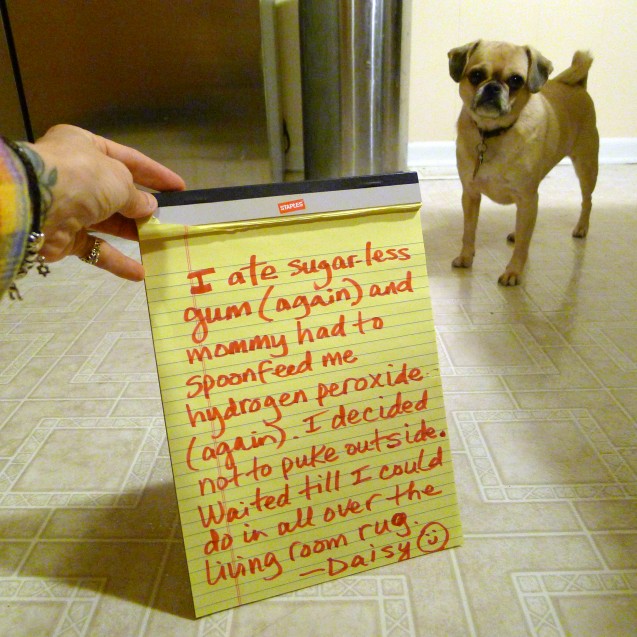 STAPLES
I ate sugar-less
gum (again) and
mommy had to
spoonfeed me
hydrogen peroxide
(again). I decided
not to puke outside.
Waited till I could
do in all over the
living room rug.
—Daisy